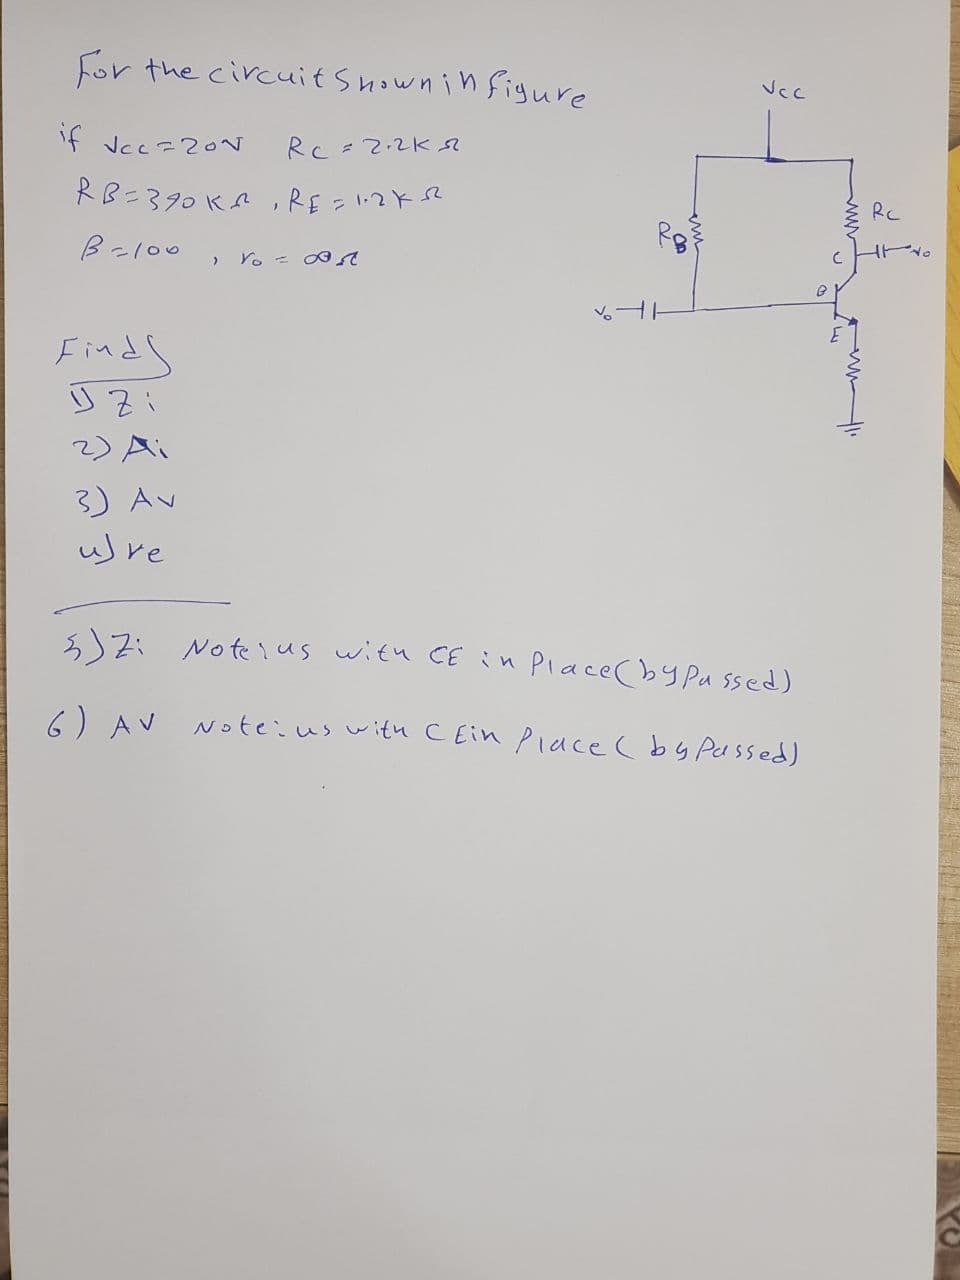 For the circuit Shown in figure
if Vcc=20V Rc=2.2KΩ
RB=390KΩ, RE=1.2KΩ
β=100, ro=∞Ω
Vcc
Rc
RB
C
Vo
B
Vo
E
Find
1) Zi
2) Ai
3) Av
4) re
5) Zi Note: us with CE in Place (bypassed)
6) AV Note: us with CE in Place (by Passed)